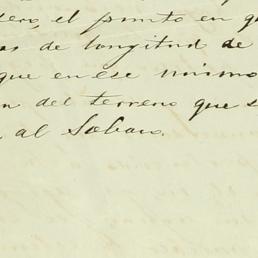 dero, el punto en qu
as de longitud de
que en ese mismo
n del terreno que s
al Sabano.